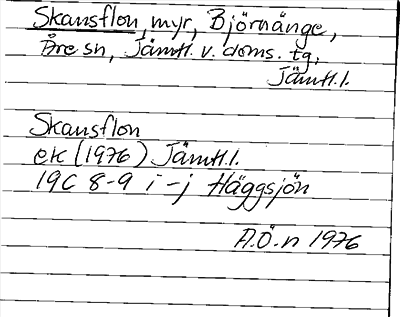 Skansflon, myr, Björnänge,
Åre sn, Jämtl. v. doms. tg,
Jämtl.l.
Skansflon
ek (1976) Jämtl.l.
19C 8-9 i-j Häggsjön
A.Ö-n 1976